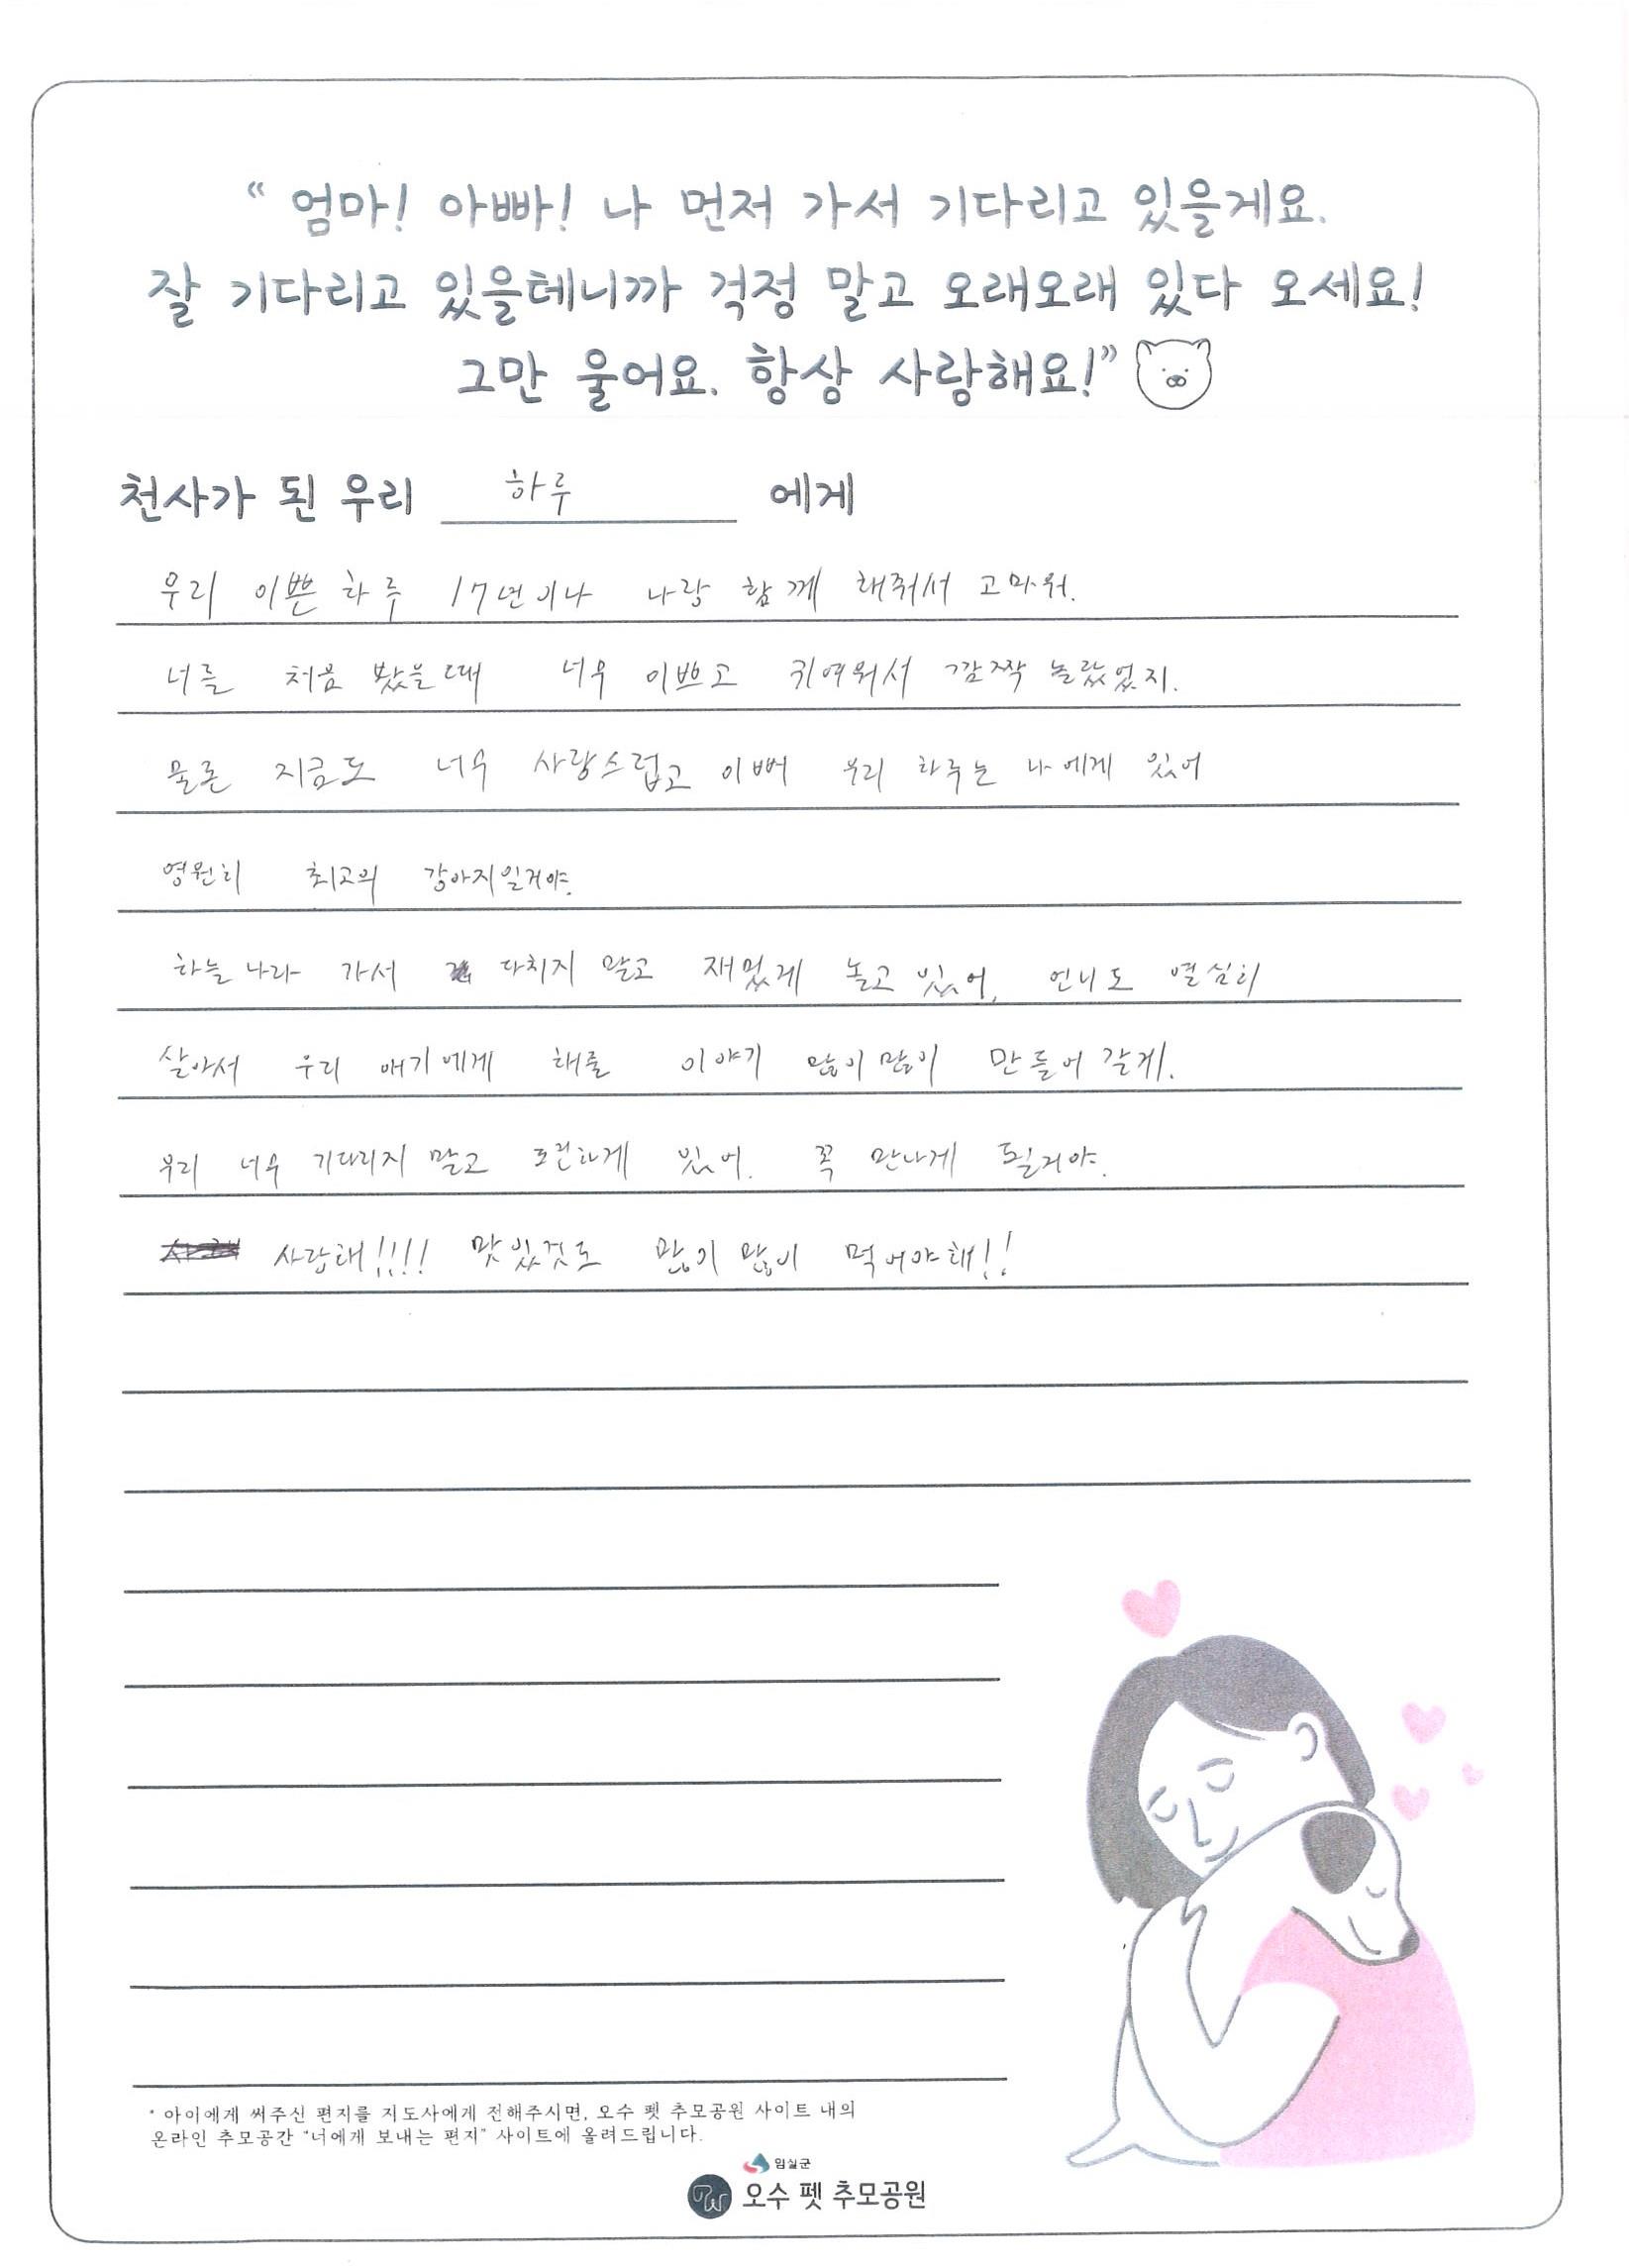 “ 엄마! 아빠! 나 먼저 가서 기다리고 있을게요.
잘 기다리고 있을테니까 걱정 말고 오래오래 있다 오세요!
그만 울어요. 항상 사랑해요!”
천사가 된 우리 하루 에게
우리 이쁜 하루 17년이나 나랑 함께 해줘서 고마워.
너를 처음 봤을때 너무 이쁘고 귀여워서 깜짝 놀랐었지.
물론 지금도 너무 사랑스럽고 이뻐 우리 하루는 나에게 있어
영원히 최고의 강아지일거야.
하늘나라 가서 다치지 말고 재밌게 놀고 있어, 언니도 열심히
살아서 우리 애기에게 해줄 이야기 많이많이 만들어 갈게.
우리 너무 기다리지 말고 편하게 있어. 꼭 만나게 될거야.
사랑해!!!! 맛있것도 많이 많이 먹어야해!!
* 아이에게 써주신 편지를 지도사에게 전해주시면, 오수 펫 추모공원 사이트 내의
온라인 추모공간 "너에게 보내는 편지" 사이트에 올려드립니다.
임실군
PW 오수 펫 추모공원